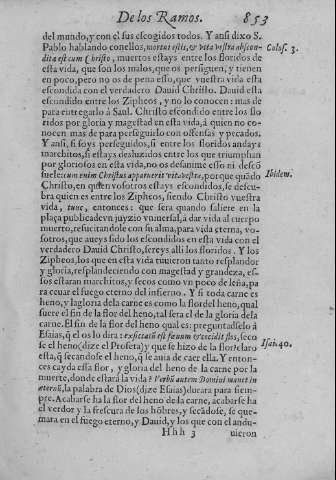 De los Ramos. 853
del mundo, y con el sus escogidos todos. Y ansi dixo S.
Pablo hablando conellos, mortui estis, & vita vestra abscon- Colos. 3.
dita est cum Christo, muertos estays entre los floridos de
esta vida, que son los malos, que os persiguen, y tienen
en poco, pero no os de pena esso, que vuestra vida esta
escondida con el verdadero Dauid Christo. Dauid esta
escondido entre los Zipheos, y no lo conocen: mas de
para entregarlo à Saul. Christo escondido entre los flo
ridos por gloria y magestad en esta vida, à quien no co-
nocen mas de para perseguirlo con offensas y pecados.
Y ansi, si soys perseguidos, si entre los floridos andays
marchitos, si estays deshuzidos entre los que triumphan
por gloriosos en esta vida, no os desanime esso ni descõ
suele: cum enim Christus apparuerit vita vestra, porque quãdo Ibidem.
Christo, en quien vosotros estays escondidos, se descu-
bra quien es entre los Zipheos, siendo Christo vuestra
vida, tunc, entonces: que sera quando saliere en la
plaça publica de vn juyzio vniuersal, à dar vida al cuerpo
muerto, resucitandole con su alma, para vida eterna, vo-
sotros, que aueys sido los escondidos en esta vida con el
verdadero Dauid Christo, sereys alli los floridos. Y los
Zipheos, los que en esta vida tuuieron tanto resplandor
y gloria, resplandeciendo con magestad y grandeza, es-
sos estaran marchitos, y secos como vn poco de leña, pa
ra ceuar el fuego eterno del infierno. Y si toda carne es
heno, y la gloria de la carne es como la flor del heno, qual
fuere el fin de la flor del heno, tal sera el de la gloria de la
carne. El fin de la flor del heno qual es: preguntadselo à
Esaias, q̃ el os lo dira: exsiccatũ est fœnum & cecidit flos, seco Isai. 40.
se el heno (dize el Profeta) y que se hizo de la flor? claro
esta, q̃ secandose el heno, q̃ se auia de caer ella. Y enton-
ces cayda essa flor, y gloria del heno de la carne por la
muerte, donde estará la vida? Verbũ autem Domini manet in
æternũ, la palabra de Dios (dize Esaias) durara para siem-
pre. Acabarse ha la flor del heno de la carne, acabarse ha
el verdor y la frescura de los hõbres, y secãdose, se que-
mara en el fuego eterno, y Dauid, y los que con el andu-
Hhh 3 uieron